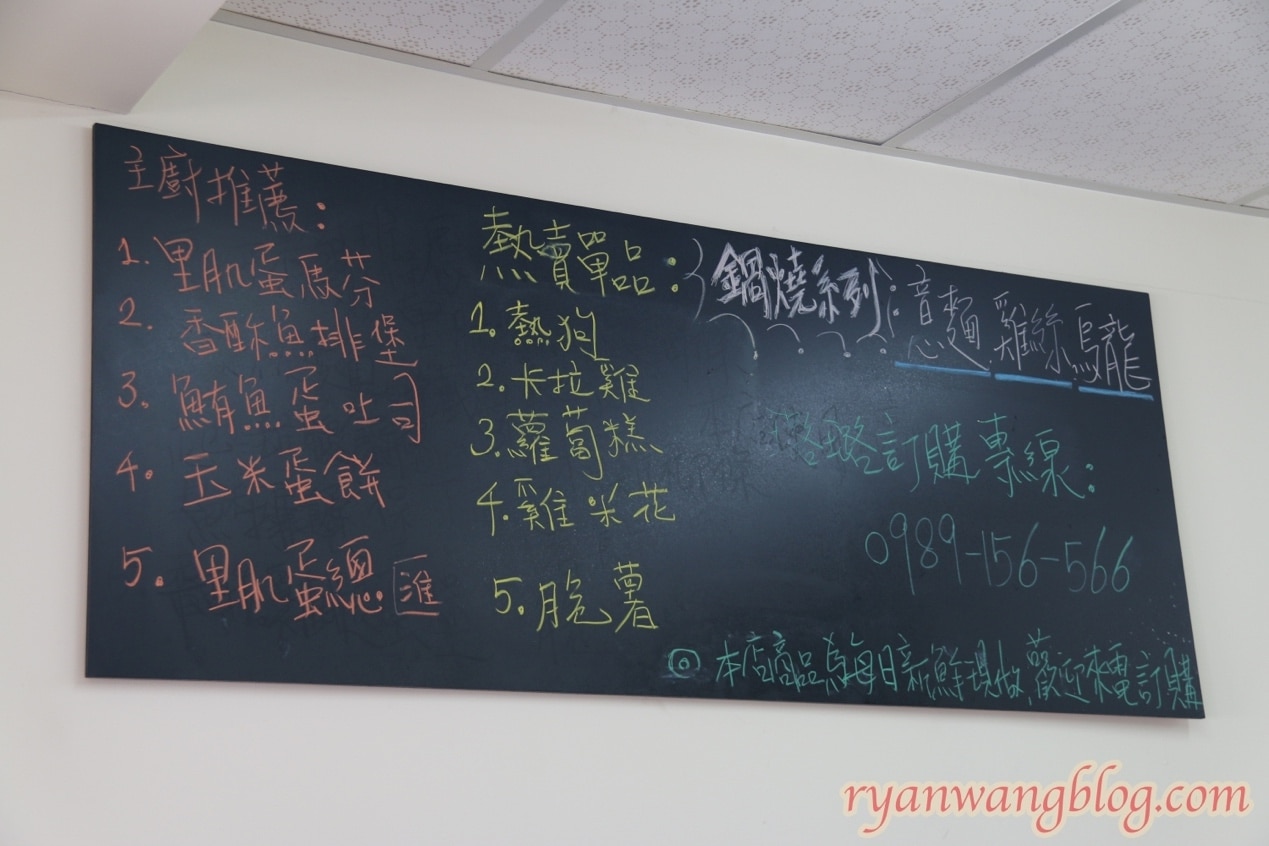 主廚推薦：
1. 里肌蛋馬芬
2. 香酥魚排堡
3. 鮪魚蛋吐司
4. 玉米蛋餅
5. 里肌蛋總匯
熱賣單品：
1. 熱狗
2. 卡拉雞
3. 蘿蔔糕
4. 雞米花
5. 脆薯
鍋燒系列：意麵.雞絲.烏龍
咯咯訂購專線：
0989-156-566
◎本店商品為每日新鮮現做,歡迎來電訂購
ryanwangblog.com